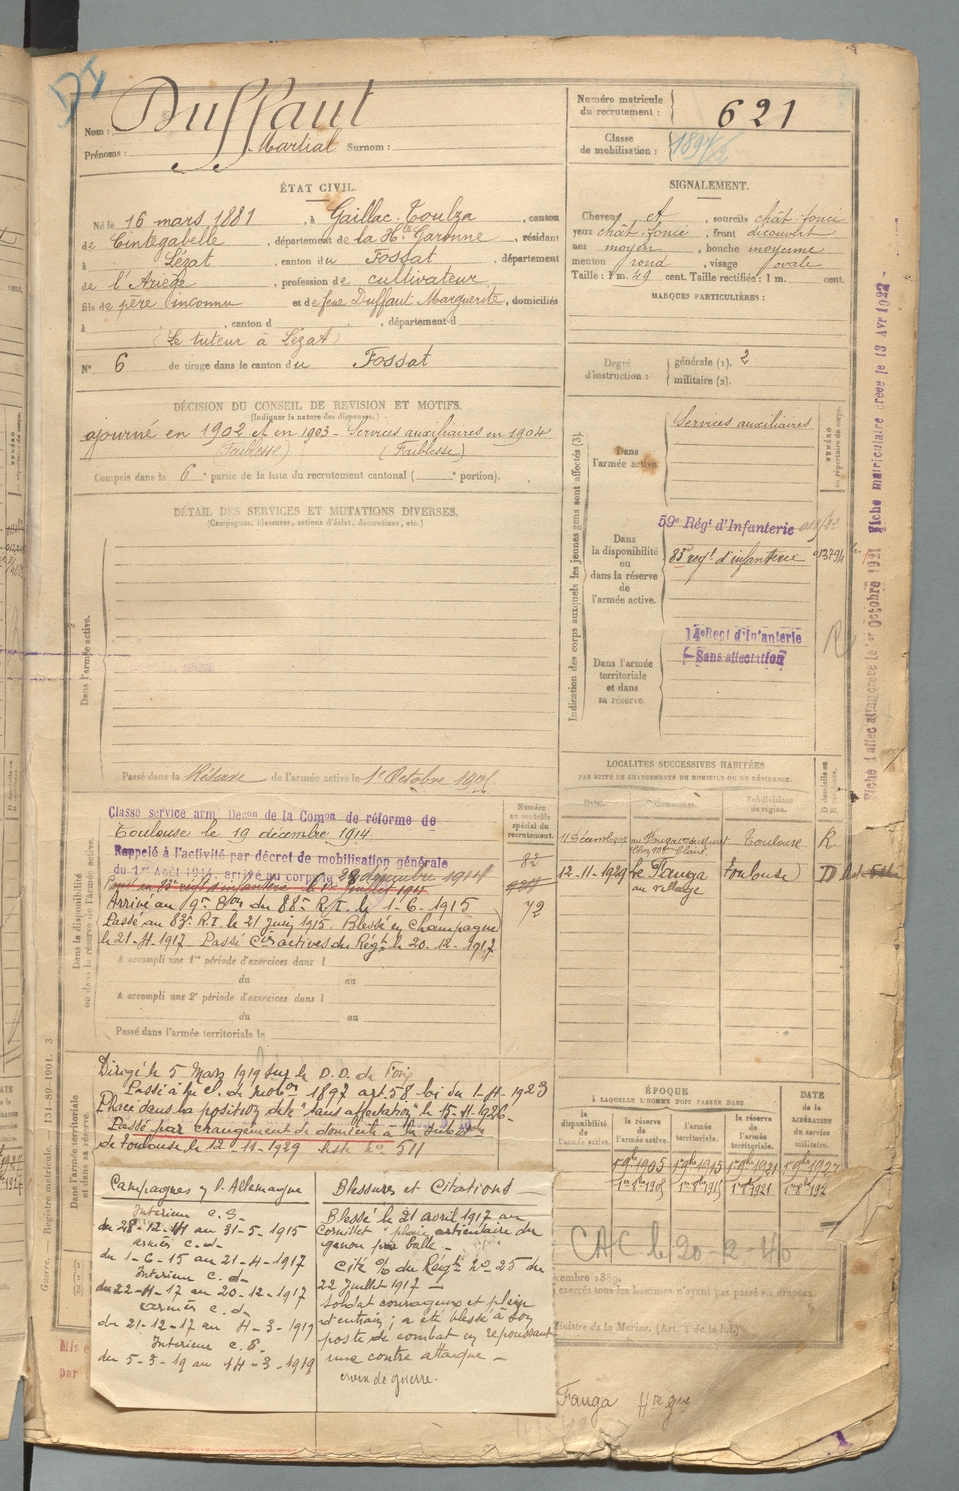 DI
Nom : Duffaut
Prénoms : Martial Surnom :
Numéro matricule du recrutement : 621
Classe de mobilisation : 1897
ÉTAT CIVIL.
Né le 16 mars 1881, à Gaillac-Toulza, canton
de Cintegabelle, département de la Hte Garonne, résidant
à Lézat, canton du Fossat, département
de l'Ariège, profession de cultivateur
fils de père inconnu et de feue Duffaut Marguerite, domiciliés
à , canton d , département d
(Le tuteur à Lézat)
N° 6 de tirage dans le canton du Fossat
SIGNALEMENT.
Cheveux ct, sourcils chât. foncé
yeux chât. foncé, front découvert
nez moyen, bouche moyenne
menton rond, visage ovale
Taille : 1 m. 49 cent. Taille rectifiée : 1 m. cent.
MARQUES PARTICULIÈRES :
Degré d'instruction : générale (1). 2
militaire (2).
DÉCISION DU CONSEIL DE REVISION ET MOTIFS.
(Indiquer la nature des dispenses.)
ajourné en 1902 et en 1903 - Services auxiliaires en 1904
(Faiblesse) (Faiblesse)
Compris dans la 6e partie de la liste du recrutement cantonal ( e portion).
DÉTAIL DES SERVICES ET MUTATIONS DIVERSES.
(Campagnes, blessures, actions d'éclat, décorations, etc.)
Dans l'armée active.
Passé dans la Réserve de l'armée active le 1er Octobre
Indication des corps auxquels les jeunes gens sont affectés (3).
NUMÉRO au répertoire du corps.
Dans l'armée active.
Services auxiliaires
Dans la disponibilité ou dans la réserve de l'armée active.
59e Régt d'Infanterie
83e régt d'infanterie
Dans l'armée territoriale et dans sa réserve.
14e Regt d'Infanterie
Sans affectation
R
Fiche d'affectation créée le 1er Octobre 1921 Fiche matriculaire créée le 13 Avr 1922
LOCALITÉS SUCCESSIVES HABITÉES
PAR SUITE DE CHANGEMENTS DE DOMICILE OU DE RÉSIDENCE.
Dates. Communes. Subdivisions de région. D domicile ou R
au Fauga Toulouse R
12-11-1929 Le Fauga Toulouse D
au village
Dans la disponibilité ou dans la réserve de l'armée active.
Numéro au contrôle spécial du recrutement.
82
72
Classé service armé Décon de la Comon de réforme de
Toulouse le 19 décembre 1914
Rappelé à l'activité par décret de mobilisation générale
du 1er Août 1914, arrivé au corps le 28 décembre 1914
Arrivé au 19e Bon du 88e R.T. le 1-6-1915
Passé au 83e R.T. le 21 Juin 1915. Blessé en Champagne
le 21-4-1917 - Passé Cies actives du Régt le 20-12-1917
A accompli une 1re période d'exercices dans l
du au
A accompli une 2e période d'exercices dans l
du au
Passé dans l'armée territoriale le
Dans l'armée territoriale et dans sa réserve.
Dirigé le 5 Mars 1919 sur le D.D. de Foix
Passé à la cl. de mobon 1897 art 58 loi du 1-4-1923
Placé dans la position dite "sans affectation" le 15-11-1926-
Passé par changement de domicile à la subdon
de Toulouse le 12-11-1929 liste No 511
ÉPOQUE
À LAQUELLE L'HOMME DOIT PASSER DANS
DATE de la LIBÉRATION du service militaire.
la disponibilité de l'armée active. la réserve de l'armée active. l'armée territoriale. la réserve de l'armée territoriale.
1er 9bre 1905 1er 9bre 1915 1er 9bre 1921 1er 9bre 1927
Guerre. — Registre matricule. — 131-89-1901. 3
Campagnes c/ l'Allemagne
Intérieur C.S.
du 28-12-14 au 31-5-1915
armées c.d.
du 1-6-15 au 21-4-1917
Intérieur C.d.
du 22-4-17 au 20-12-1917
armées c.d.
du 21-12-17 au 4-3-1919
Intérieur c.S.
du 5-3-19 au 14-3-1919
Blessures et Citations
Blessé le 21 avril 1917 au
Cornillet "plaie articulaire du
genou par balle -
Cité O/ du Régt No 25 du
22 Juillet 1917 -
Soldat courageux et plein
d'entrain ; a été blessé à son
poste de combat en repoussant
une contre attaque -
croix de guerre.
CAC le 20-2-40
cembre 1889.
Ministre de la Marine. (Art. de la loi.)
Fauga Hte gne